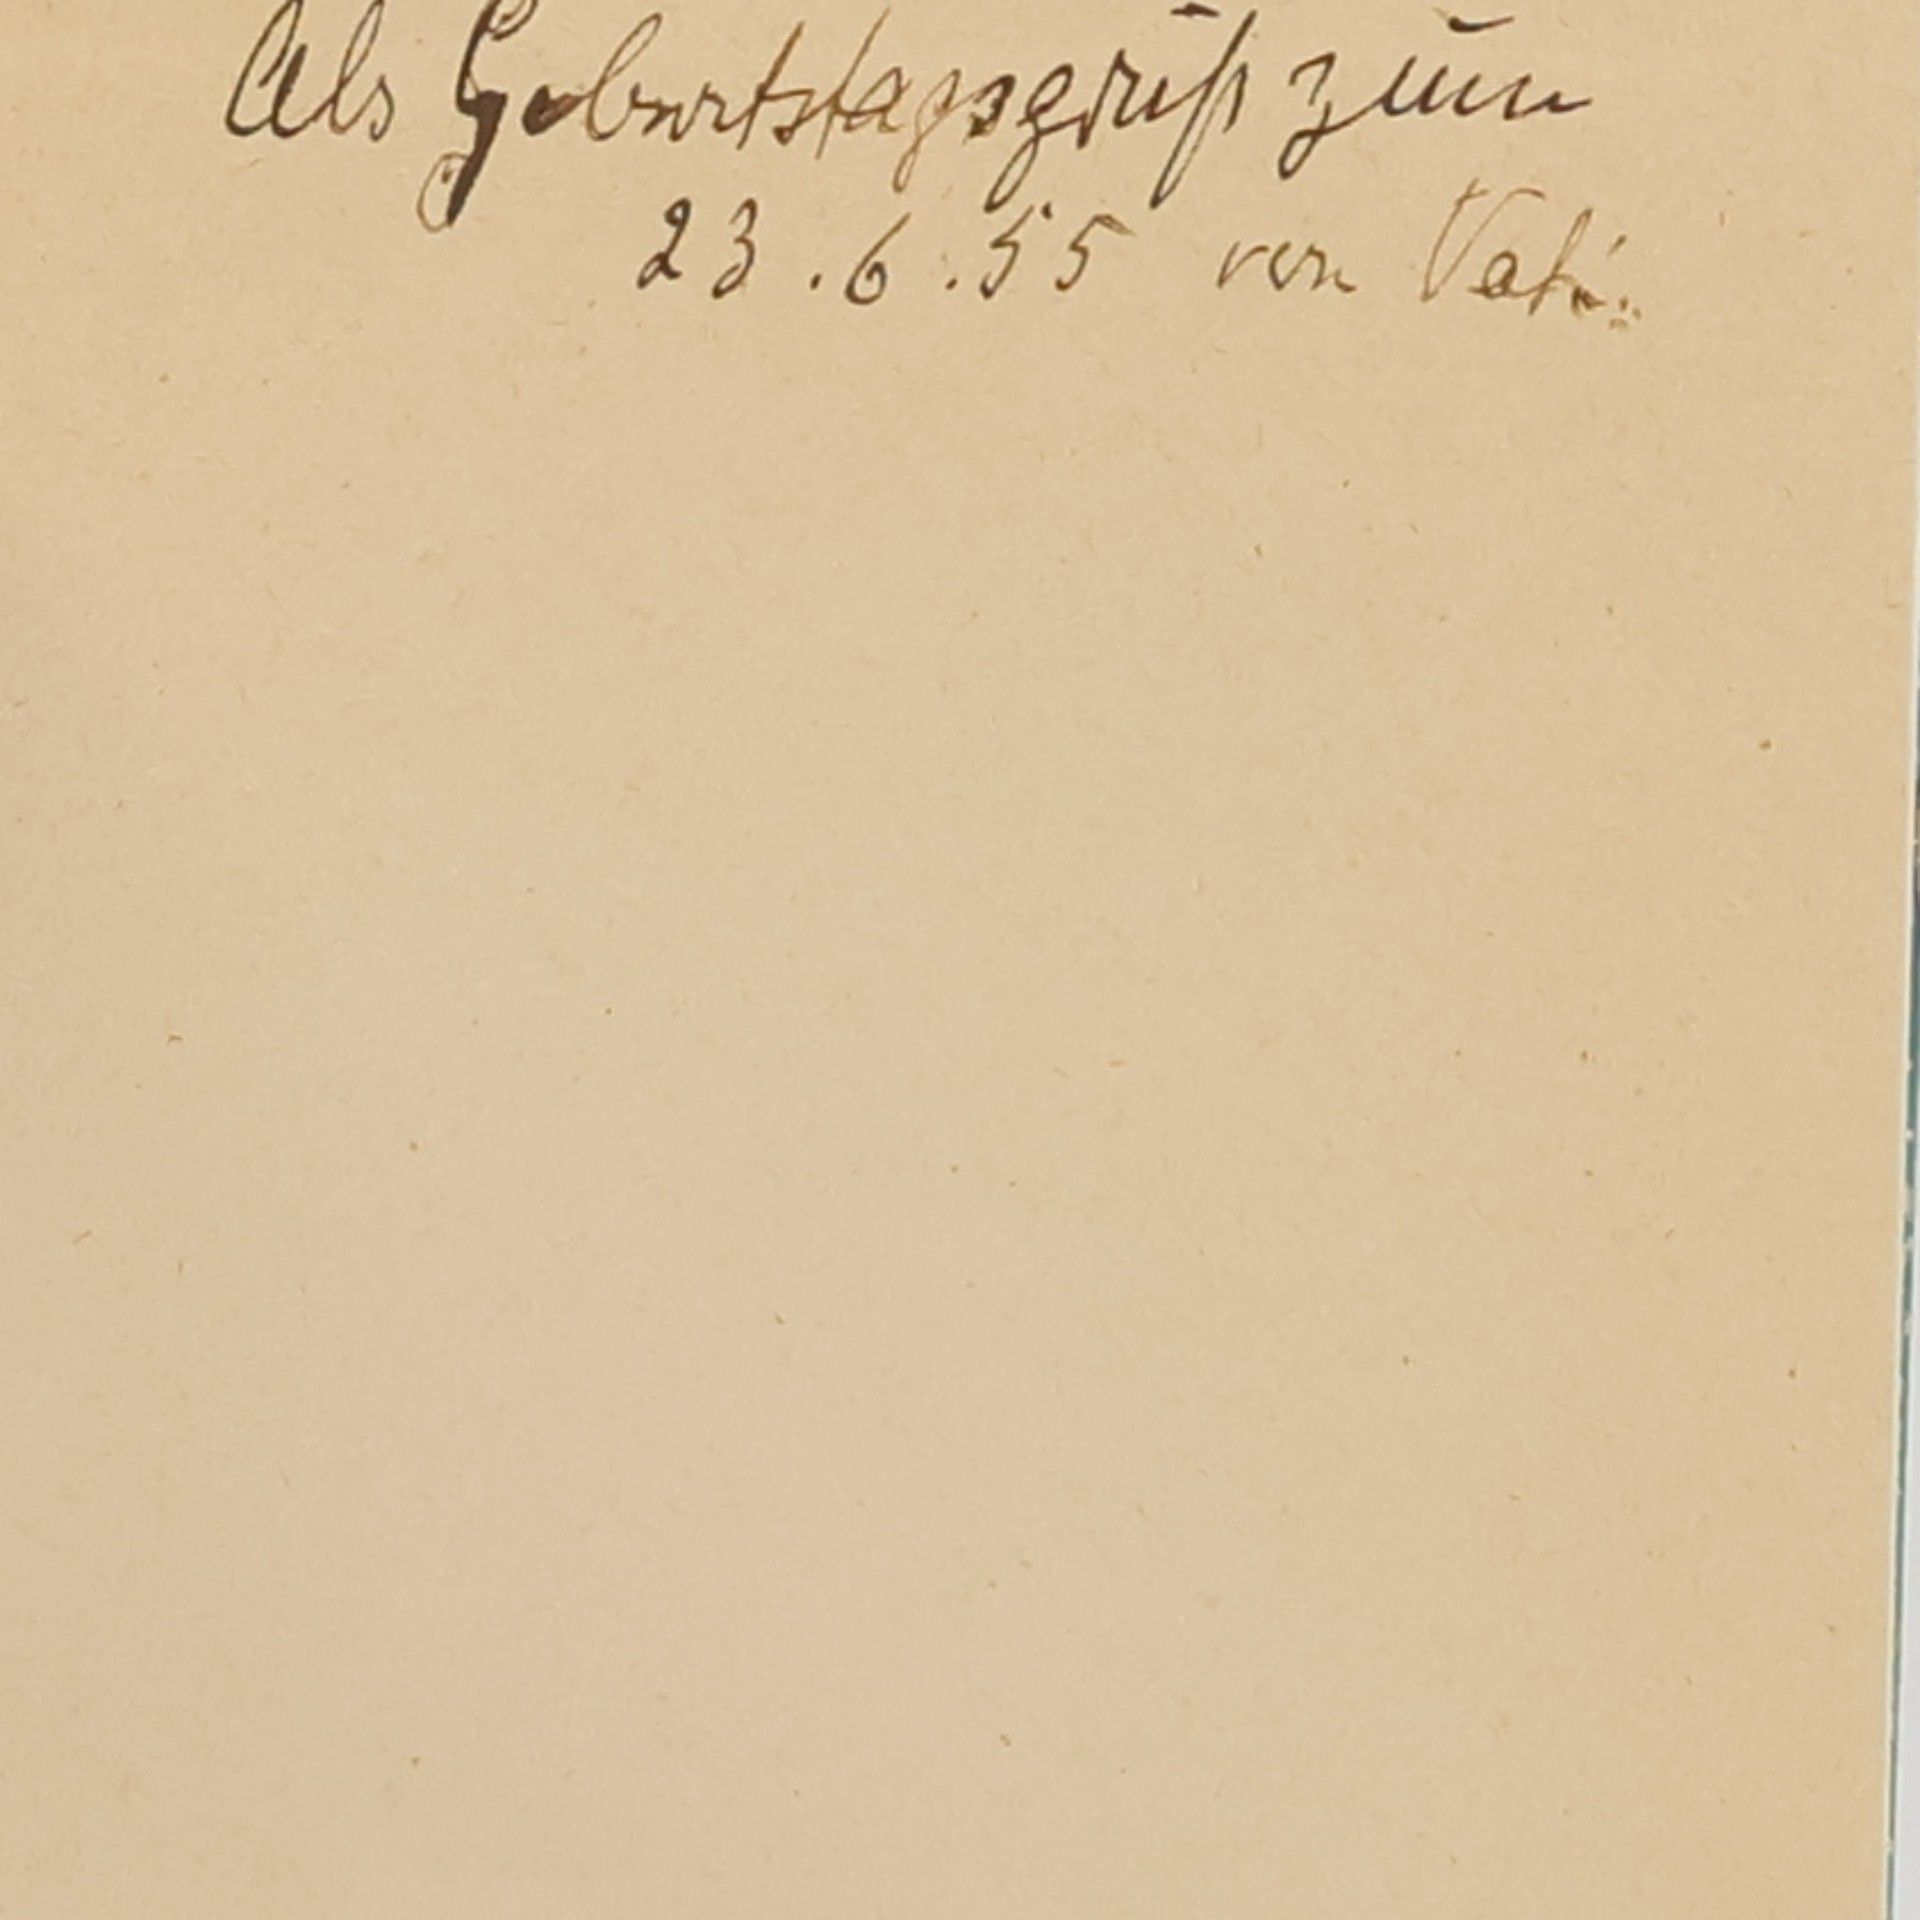 Als Geburtstagsgruß zum
23.6.55 von Vati.